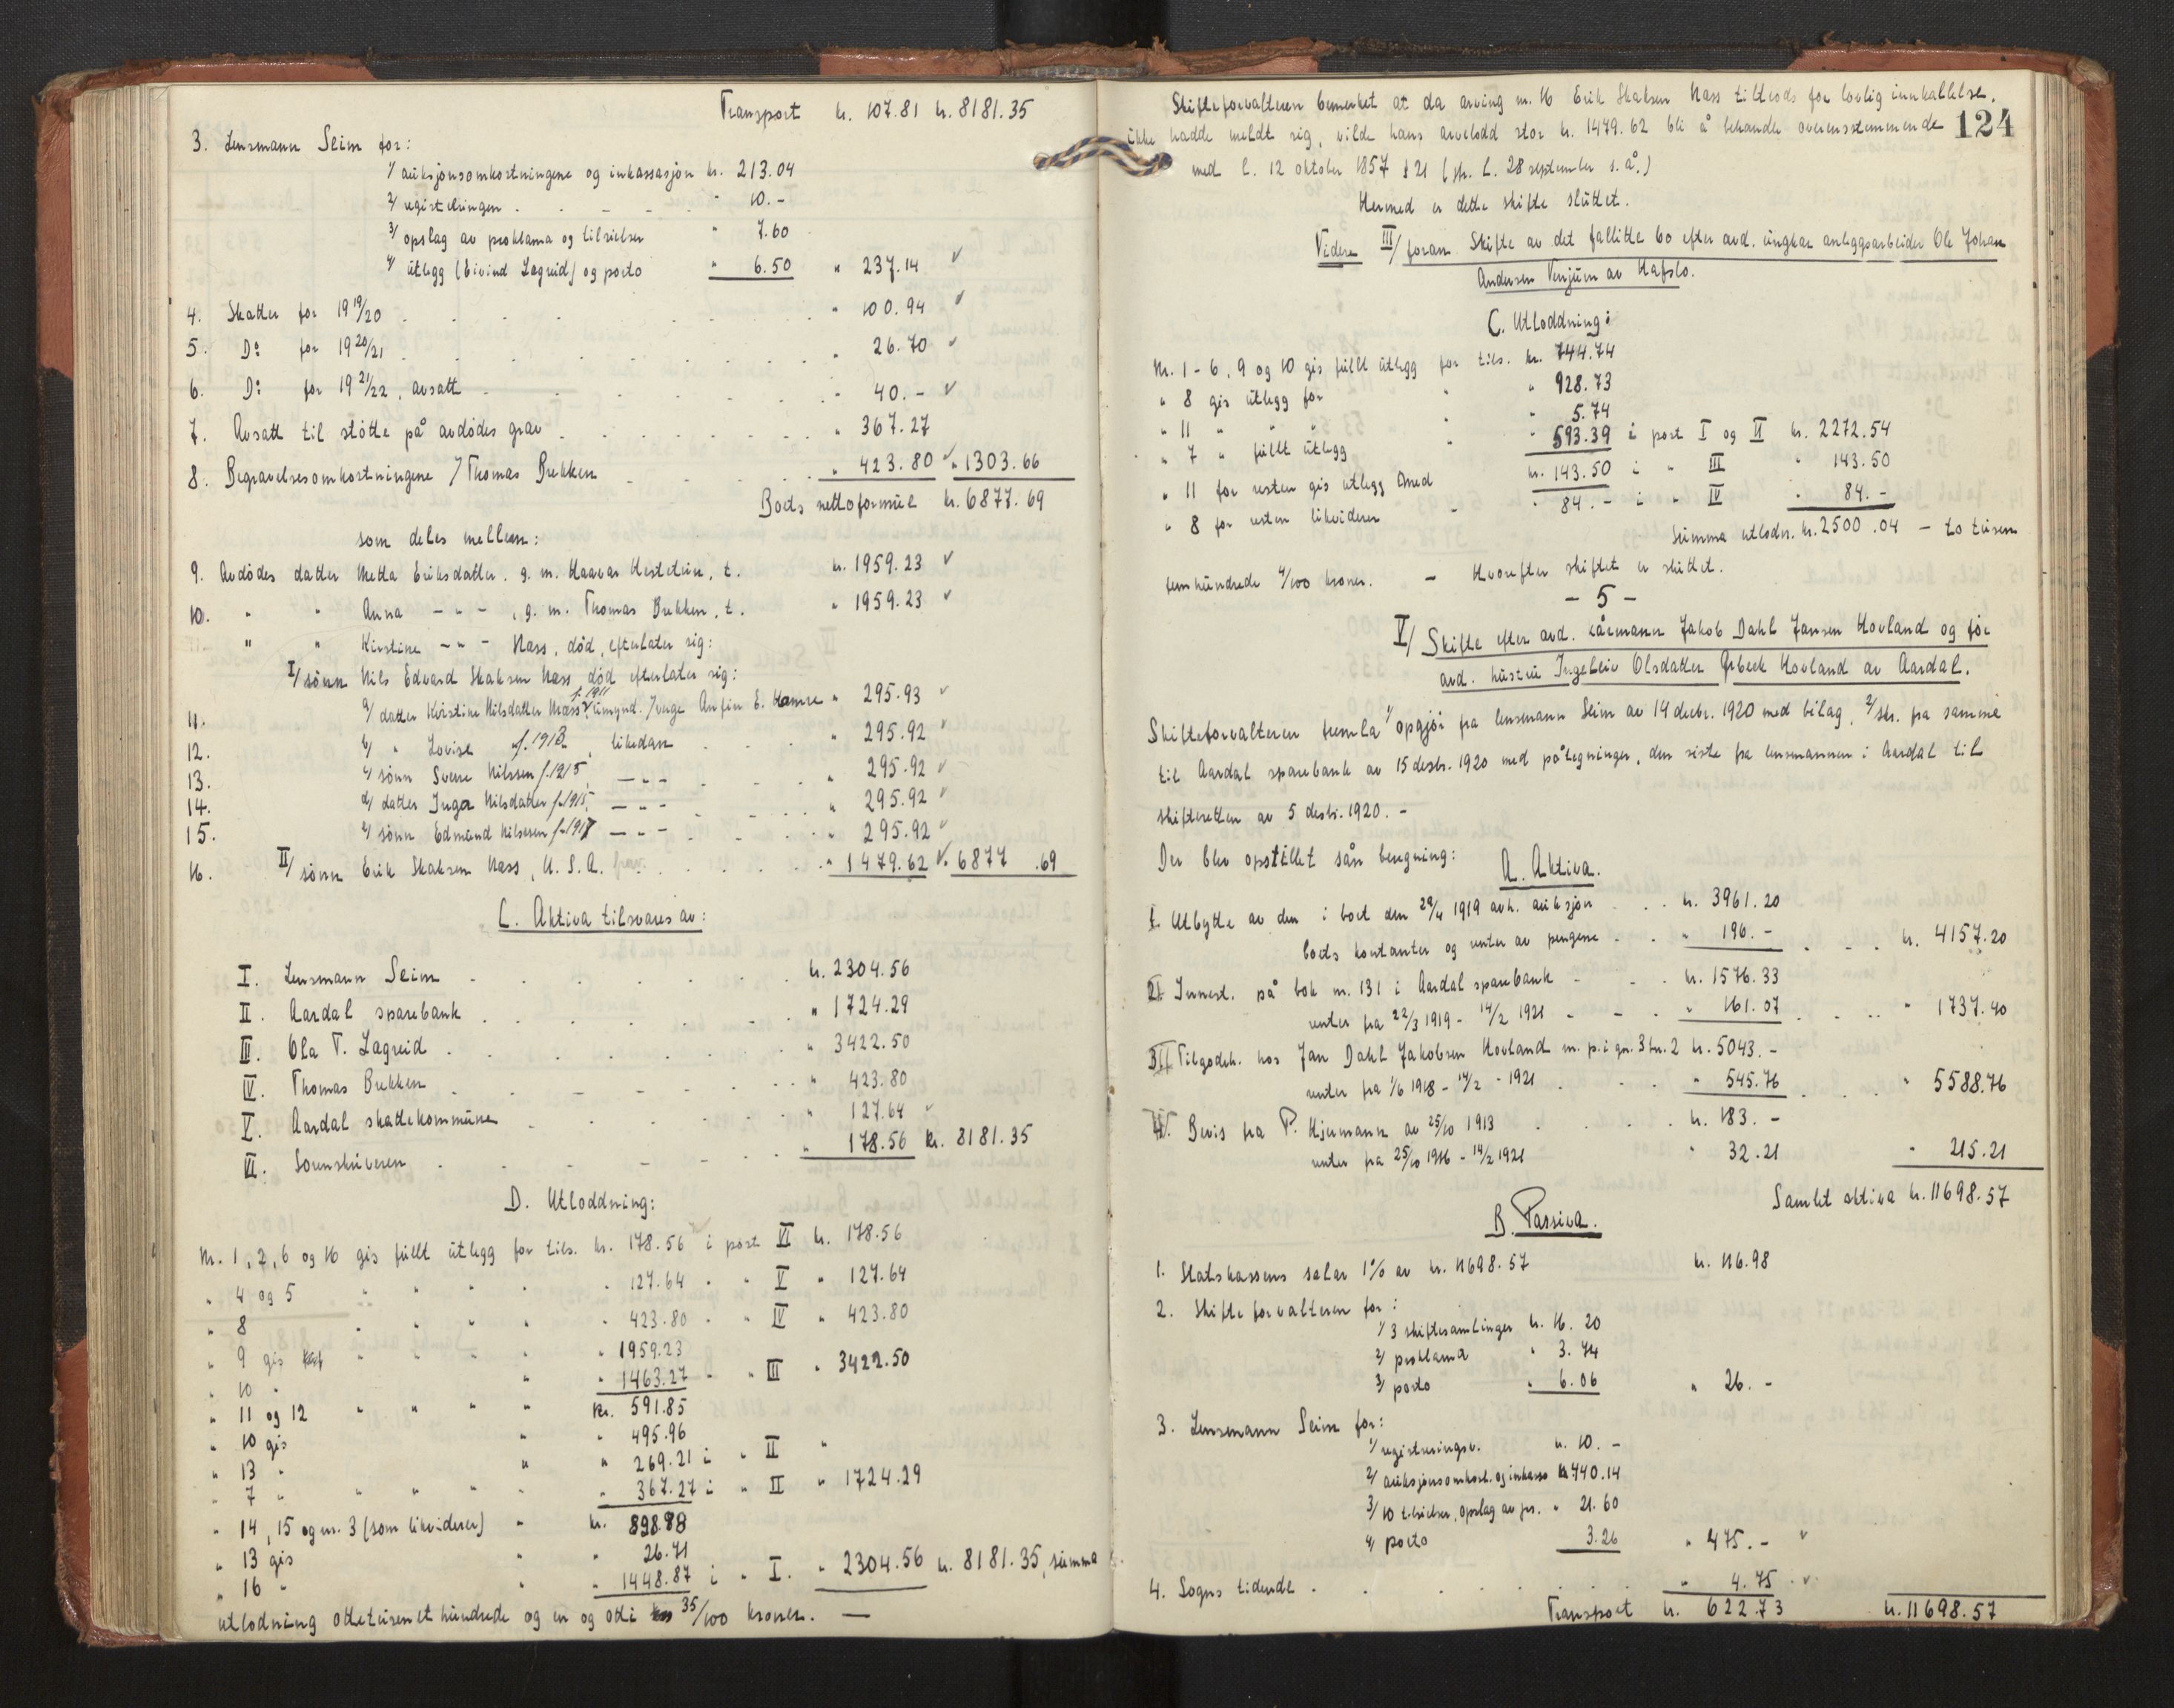 Transport kr. 107.81 kr. 8181.35
3. Lensmann Seim for:
1/ auksjonsomkostningene og inkassasjon kr. 213.04
2/ registreringen . " 10.-
3/ opslag av proklama og tilsielser " 7.60
4/ utlegg (Eivind Lægreid) og porto " 6.50 " 237.14
4. Skatter for 19 19/20 . . . " 100.94
5. Do for 19 20/21 . . . " 26.70
6. Do for 19 21/22, avsatt . . . " 40.-
7. Avsatt til støtte på avdødes grav . . . " 367.27
8. Begravelsesomkostningene / Thomas Brekken " 423.80 " 1303.66
Boets nettoformue kr. 6877.69
som deles mellem:
9. Avdødes datter Metta Eriksdatter, g. m. Haavar Hestetun, t. kr. 1959.23
10. " " Anna - " - , g. m. Thomas Brekken, t. " 1959.23
" " Kirstine - " - Nass, død, efterlater sig:
I/ sønn Nils Edvard Skaksen Nass død efterlater sig:
11. a/ datter Kirstine Nilsdatter Nass f. 1911 umynd. / verge Anfin E. Hamre " 295.93
12. b/ " Lovise f. 1913, likedan " 295.92
13. c/ sønn Sverre Nilssen f. 1915, - " - " 295.92
14. d/ datter Inga Nilsdatter f. 1915, - " - " 295.92
15. e/ sønn Edmund Nilssen f. 1917 - " - " 295.92
16. II/ sønn Erik Skaksen Nass, U.S.A. " 1479.62 " 6877.69
C. Aktiva tilsvares av:
I. Lensmann Seim . . . kr. 2304.56
II. Aardal sparebank . . . " 1724.29
III. Ola T. Lægreid . . . " 3422.50
IV. Thomas Brekken . . . " 423.80
V. Aardal skattekommune . . . " 127.64
VI. Sorenskriveren . . . " 178.56 kr. 8181.35
D. Utloddning:
Nr. 1, 2, 6 og 16 gis fullt utlegg for tils. kr. 178.56 i post VI kr. 178.56
" 4 og 5 " " " " " 127.64 " " V " 127.64
" 8 " " " " " 423.80 " " IV " 423.80
" 9 gis " " " " " 1959.23
" 10 " " " 1463.27 " " III " 3422.50
" 11 og 12 " " " " kr. 591.85
" 10 gis " " 495.96
" 13 " " " 269.21 i " II "
" 7 " " " " " " 367.27 i " II " 1724.29
" 14, 15 og nr. 3 (som likviderer) " kr. 898.98
" 13 gis " " 26.71
" 16 " " " 1448.87 i " I. " 2304.56 kr. 8181.35, summa
utlodning ottetusenethundrede og en og otti 35/100 kroner. —
124
Skifteforvalteren bemerket at da arving nr. 16 Erik Skaksen Nass tiltrods for lovlig innkallelse,
ikke hadde meldt sig, vilde hans arvelodd stor kr. 1479.62 bli å behandle overensstemmende
med l. 12 oktober 1857 § 21 (jfr. L. 28 september s. å.)
Hermed er dette skifte sluttet.
Videre III/ foran. Skifte av det fallitte bo efter avd. ungkar anleggsarbeider Ole Johan
Andersen Venjum av Hafslo.
C. Utloddning:
Nr. 1 - 6, 9 og 10 gis fullt utlegg for tils. kr. 744.74
" 8 gis utlegg for " " 928.73
" 11 " " " " 5.74
" 7 " fullt utlegg " " 593.39 i post I og II kr. 2272.54
" 11 for resten gis utlegg med kr. 143.50 i " III " 143.50
" 8 for resten likviderer - " 84.- i " IV " 84.-
summa utlodn. kr. 2500.04 - to tusen
femhundrede 4/100 kroner. - Hvorefter skiftet er sluttet.
- 5 -
V/ Skifte efter avd. kårmann Jakob Dahl Jansen Hovland og før
avd. hustru Ingebliv Olsdatter Ørbeck Hovland av Aardal.
Skifteforvalteren fremla 1/ opgjør fra lensmann Seim av 14 decbr. 1920 med bilag, 2/ skr. fra samme
til Aardal sparebank av 15 desbr. 1920 med påtegninger, den siste fra lensmannen i Aardal til
skifteretten av 5 desbr. 1920. -
Der blev opstillet sån beregning:
A. Aktiva.
1. Utbytte av den i boet den 29/4 1919 avh. auksjon . . kr. 3961.20
boets kontanter og renter av pengene . . " 196.- . . . kr. 4157.20
2. Innest. på bok nr. 131 i Aardal sparebank - . . kr. 1576.33
renter fra 22/3 1919 - 14/2 1921 - - . " 161.07 . . . " 1737.40
3. Tilgodeh. hos Jan Dahl Jakobsen Hovland m. p. i gn. 3 bn. 2 kr. 5043.-
renter fra 1/6 1918 - 14/2 - 1921 . . . " 545.76 . . . " 5588.76
4. Bevis fra P. Hjermann av 25/10 1913 . . . kr. 183.-
renter fra 25/10 1916 - 14/2 1921 " 32.21 " 215.21
Samlet aktiva kr. 11698.57
B. Passiva.
1. Statskassens salær 1% av kr. 11698.57 kr. 116.98
2. Skifteforvalteren for:
1/ 3 skiftesamlinger kr. 16.20
2/ proklama " 3.74
3/ porto " 6.06 " 26.-
3. Lensmann Seim for:
1/ registreringsv. kr. 10.-
2/ auksjonsomkost. og inkasso kr. 440.14
3/ 10 tilsielser, opslag av pr. " 21.60
4/ porto 3.26 " 475.-
4. Sogns tidende . . . " 4.75
Transport kr. 622.73 kr. 11698.57